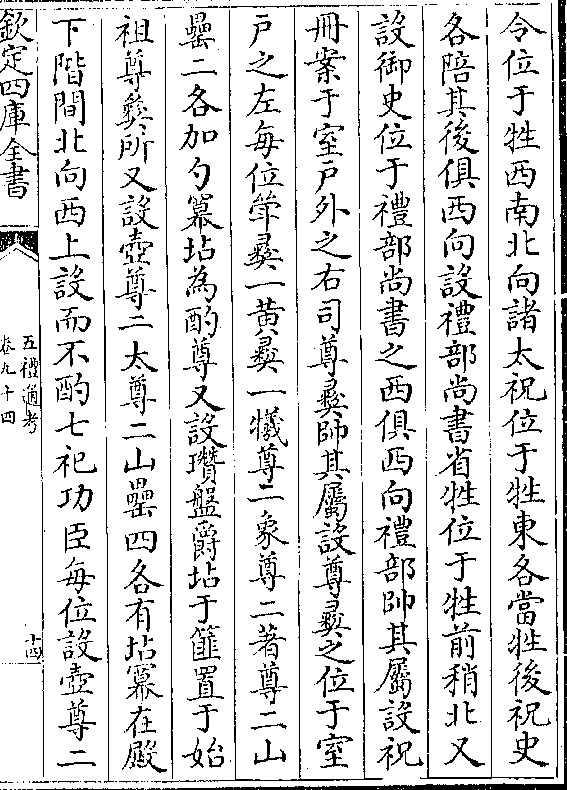 令位于牲西南北向諸太祝位于牲東各當牲後祝史
各陪其後俱西向設禮部尚書省牲位于牲前稍北又
設御史位于禮部尚書之西俱西向禮部帥其屬設祝
冊案于室戶外之右司尊彝帥其屬設尊彝之位于室
戶之左每位斝彝一黄彝一犧尊二象尊二著尊二山
罍二各加勺冪坫為酌尊又設瓚盤爵坫于篚置于始
祖尊彝所又設壺尊二太尊二山罍四各有坫冪在殿
下階間北向西上設而不酌七祀功臣每位設壺尊二
欽定四庫全書
五禮通考
卷九十四
十四